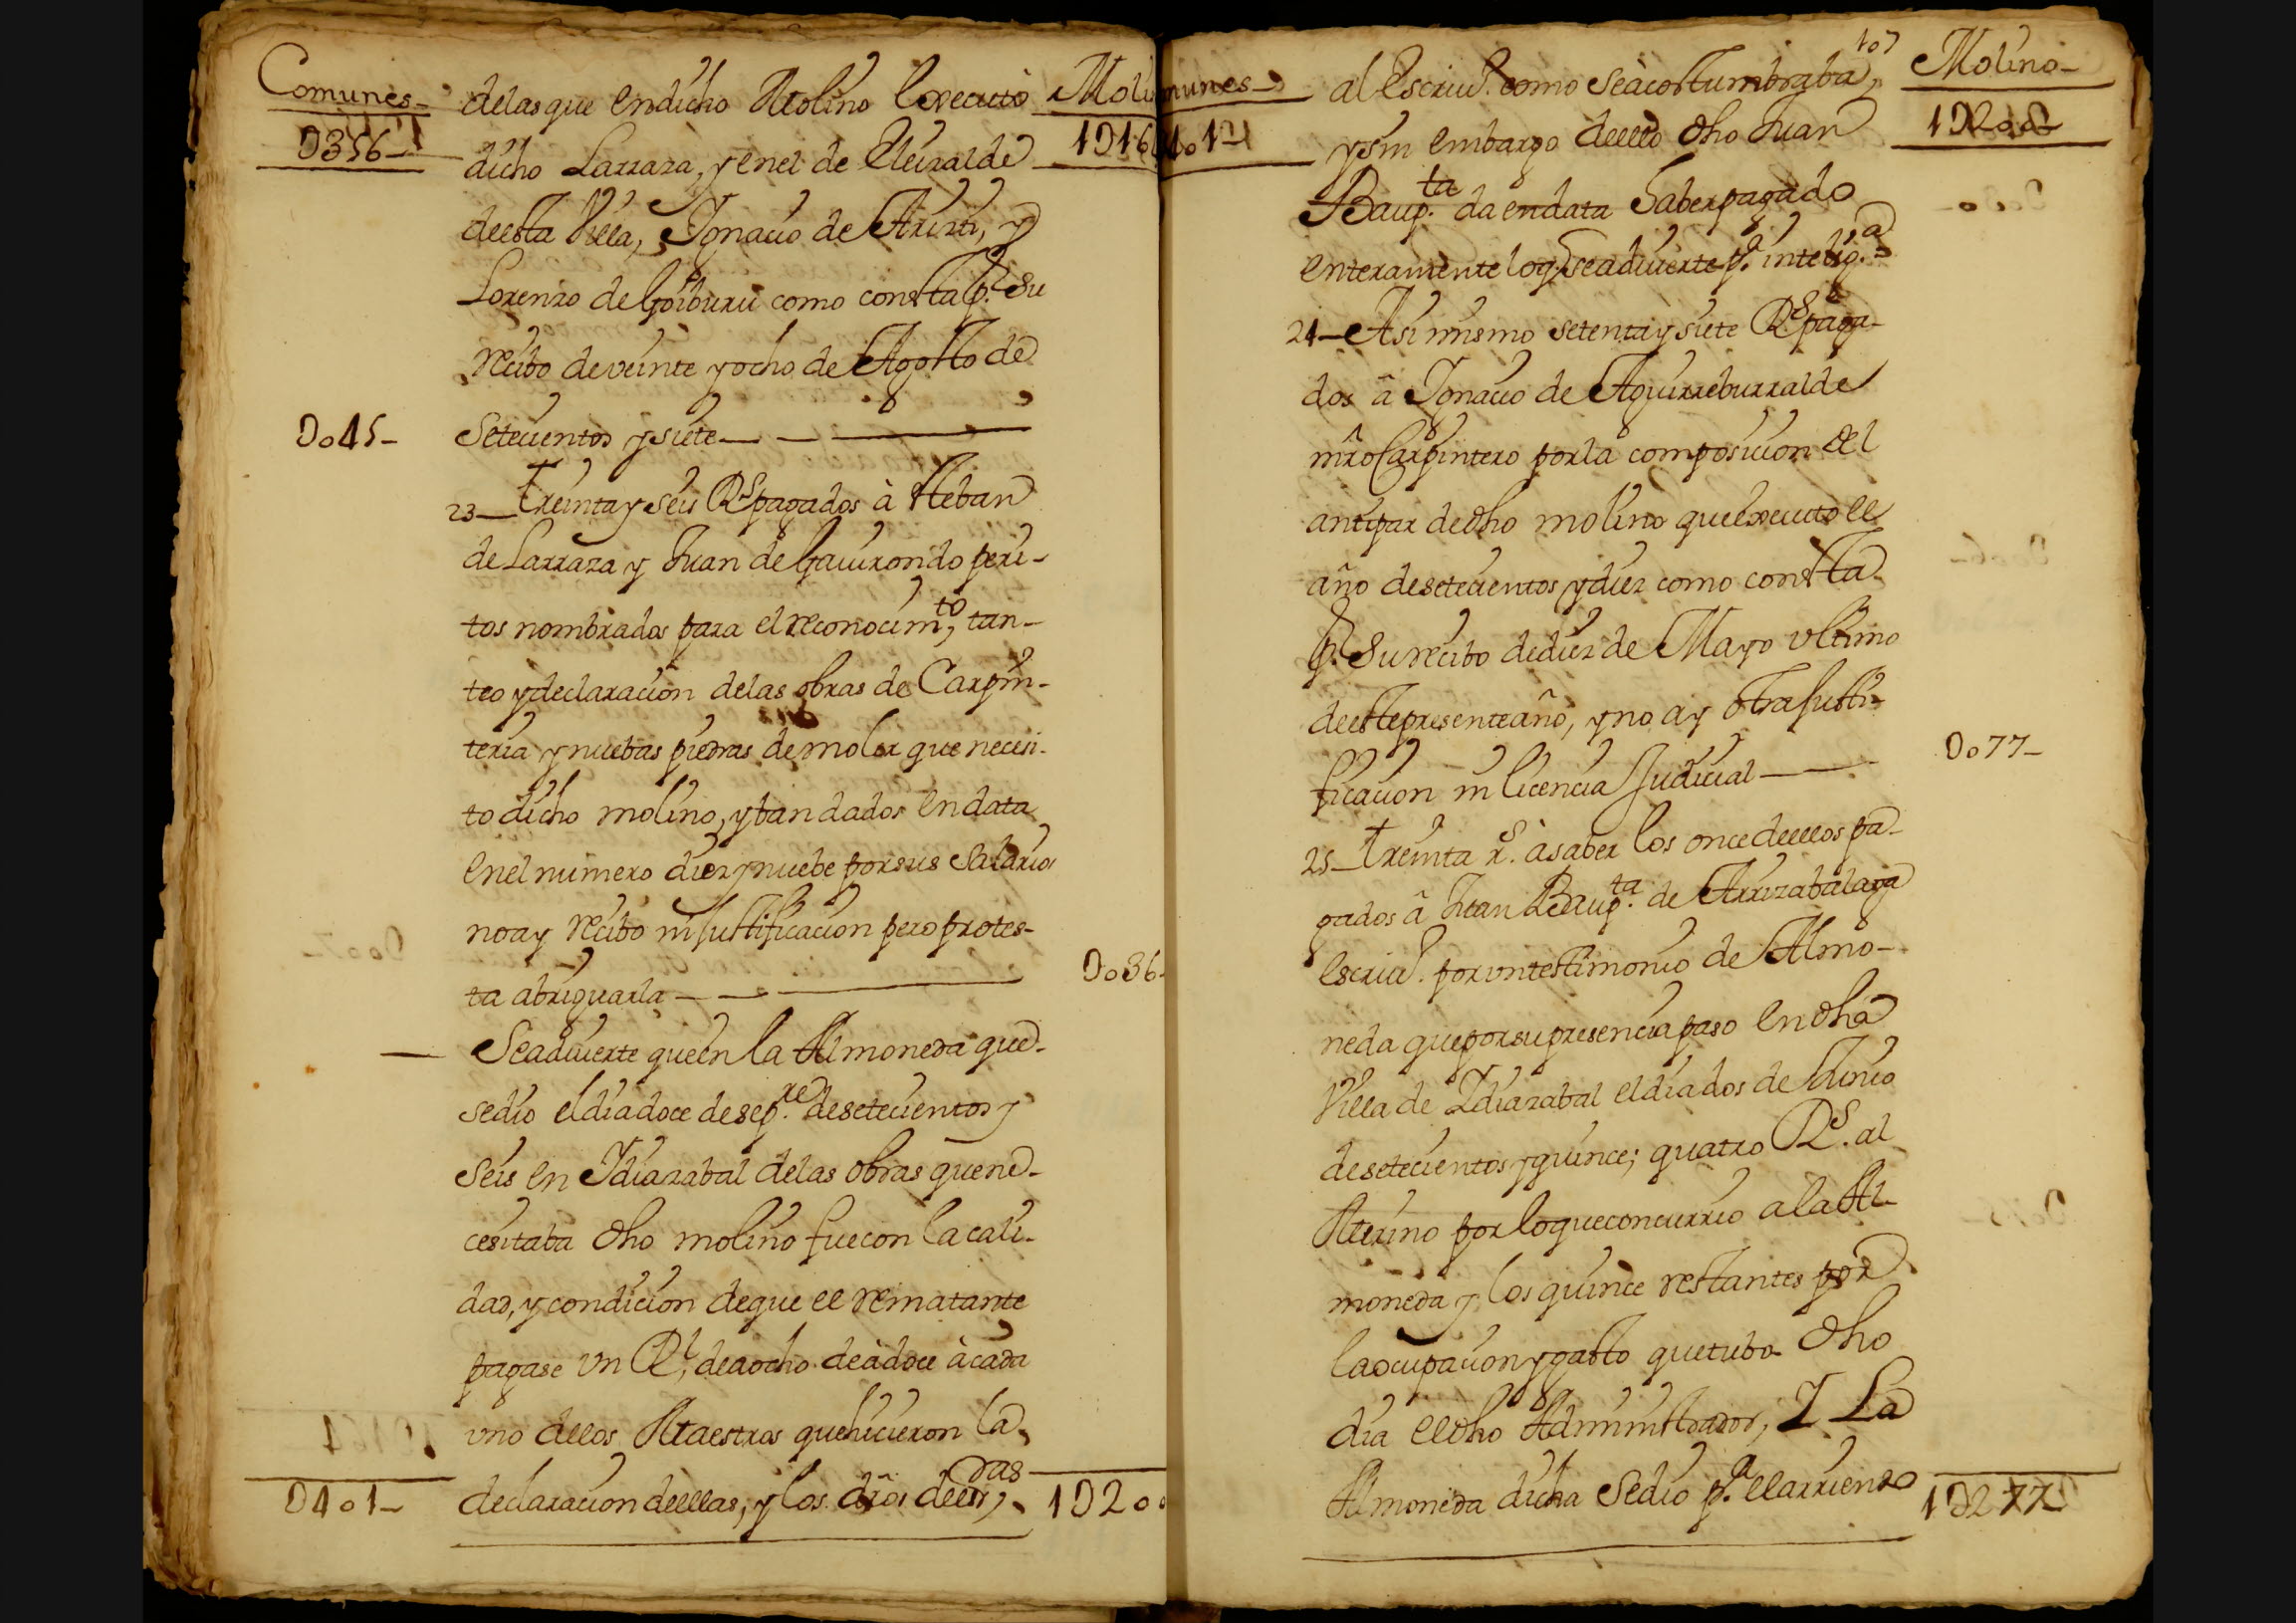 Comunes
D356
Molin
1D16
delas que en dicho Molino executò
dicho Larraza, y en el de Eleizalde
de esta Villa, Ignacio de Aruti, y
Lorenzo de Goiburu como consta p.r su
recibo de veinte y ocho de Agosto de
setecientos y siete
Do45
23 treinta y seis R.s pagados à Esteban
de Larraza y Juan de Gavirondo peri-
tos nombrados para el reconocim.to, tan-
teo y declaracion delas obras de Carpin-
teria y nuebas piedras de moler que necesi-
to dicho molino, y ban dados en data
en el numero diez y nuebe por sus salarios
no ay recibo ni justificacion pero protes-
ta abriguarla
Do36
Se advierte que en la Almoneda que
se dio el dia doce de sep.re de setecientos y
seis en Idiazabal delas obras que ne-
cesitaba dho molino fue con la cali-
dad, y condicion de que el rematante
pagase vn R.l, de aocho de à doce à cada
vno de los Maestros que hicieron la
declaracion de ellas, y los dros de el
das
D401
1D20
munes
4o1
107
Molino
1D200
al Escriv.o como se àcostumbraba,
y sin embargo de ello dho Juan
Baup.ta da en data haber pagado
enteramente loq.e se advierte p.a intelig.a
24 Asi mismo setenta y siete R.s paga-
dos â Ignacio de Aguirreburralde
mro Carpintero por la composicion del
antipar de dho molino que executo el
año de setecientos y diez como consta
p.r su recibo de diez de Mayo vltimo
de este presente año, y no ay otra justi-
ficacion ni licencia Judicial
Do77
25 treinta r.s à saber los once de ellos pa-
gados â Juan Baup.ta de Arrizabalaga
escriv.o por vn testimonio de Almo-
neda que por su presencia paso en dha
Villa de Idiazabal el dia dos de Junio
de setecientos y quince; quatro R.s al
Merino por lo que concurrio a la Al-
moneda y los quince restantes por
la ocupacion y gasto que tubo dho
dia el dho Administrador, Y La
Almoneda dicha se dio p.a el arriendo
1D277